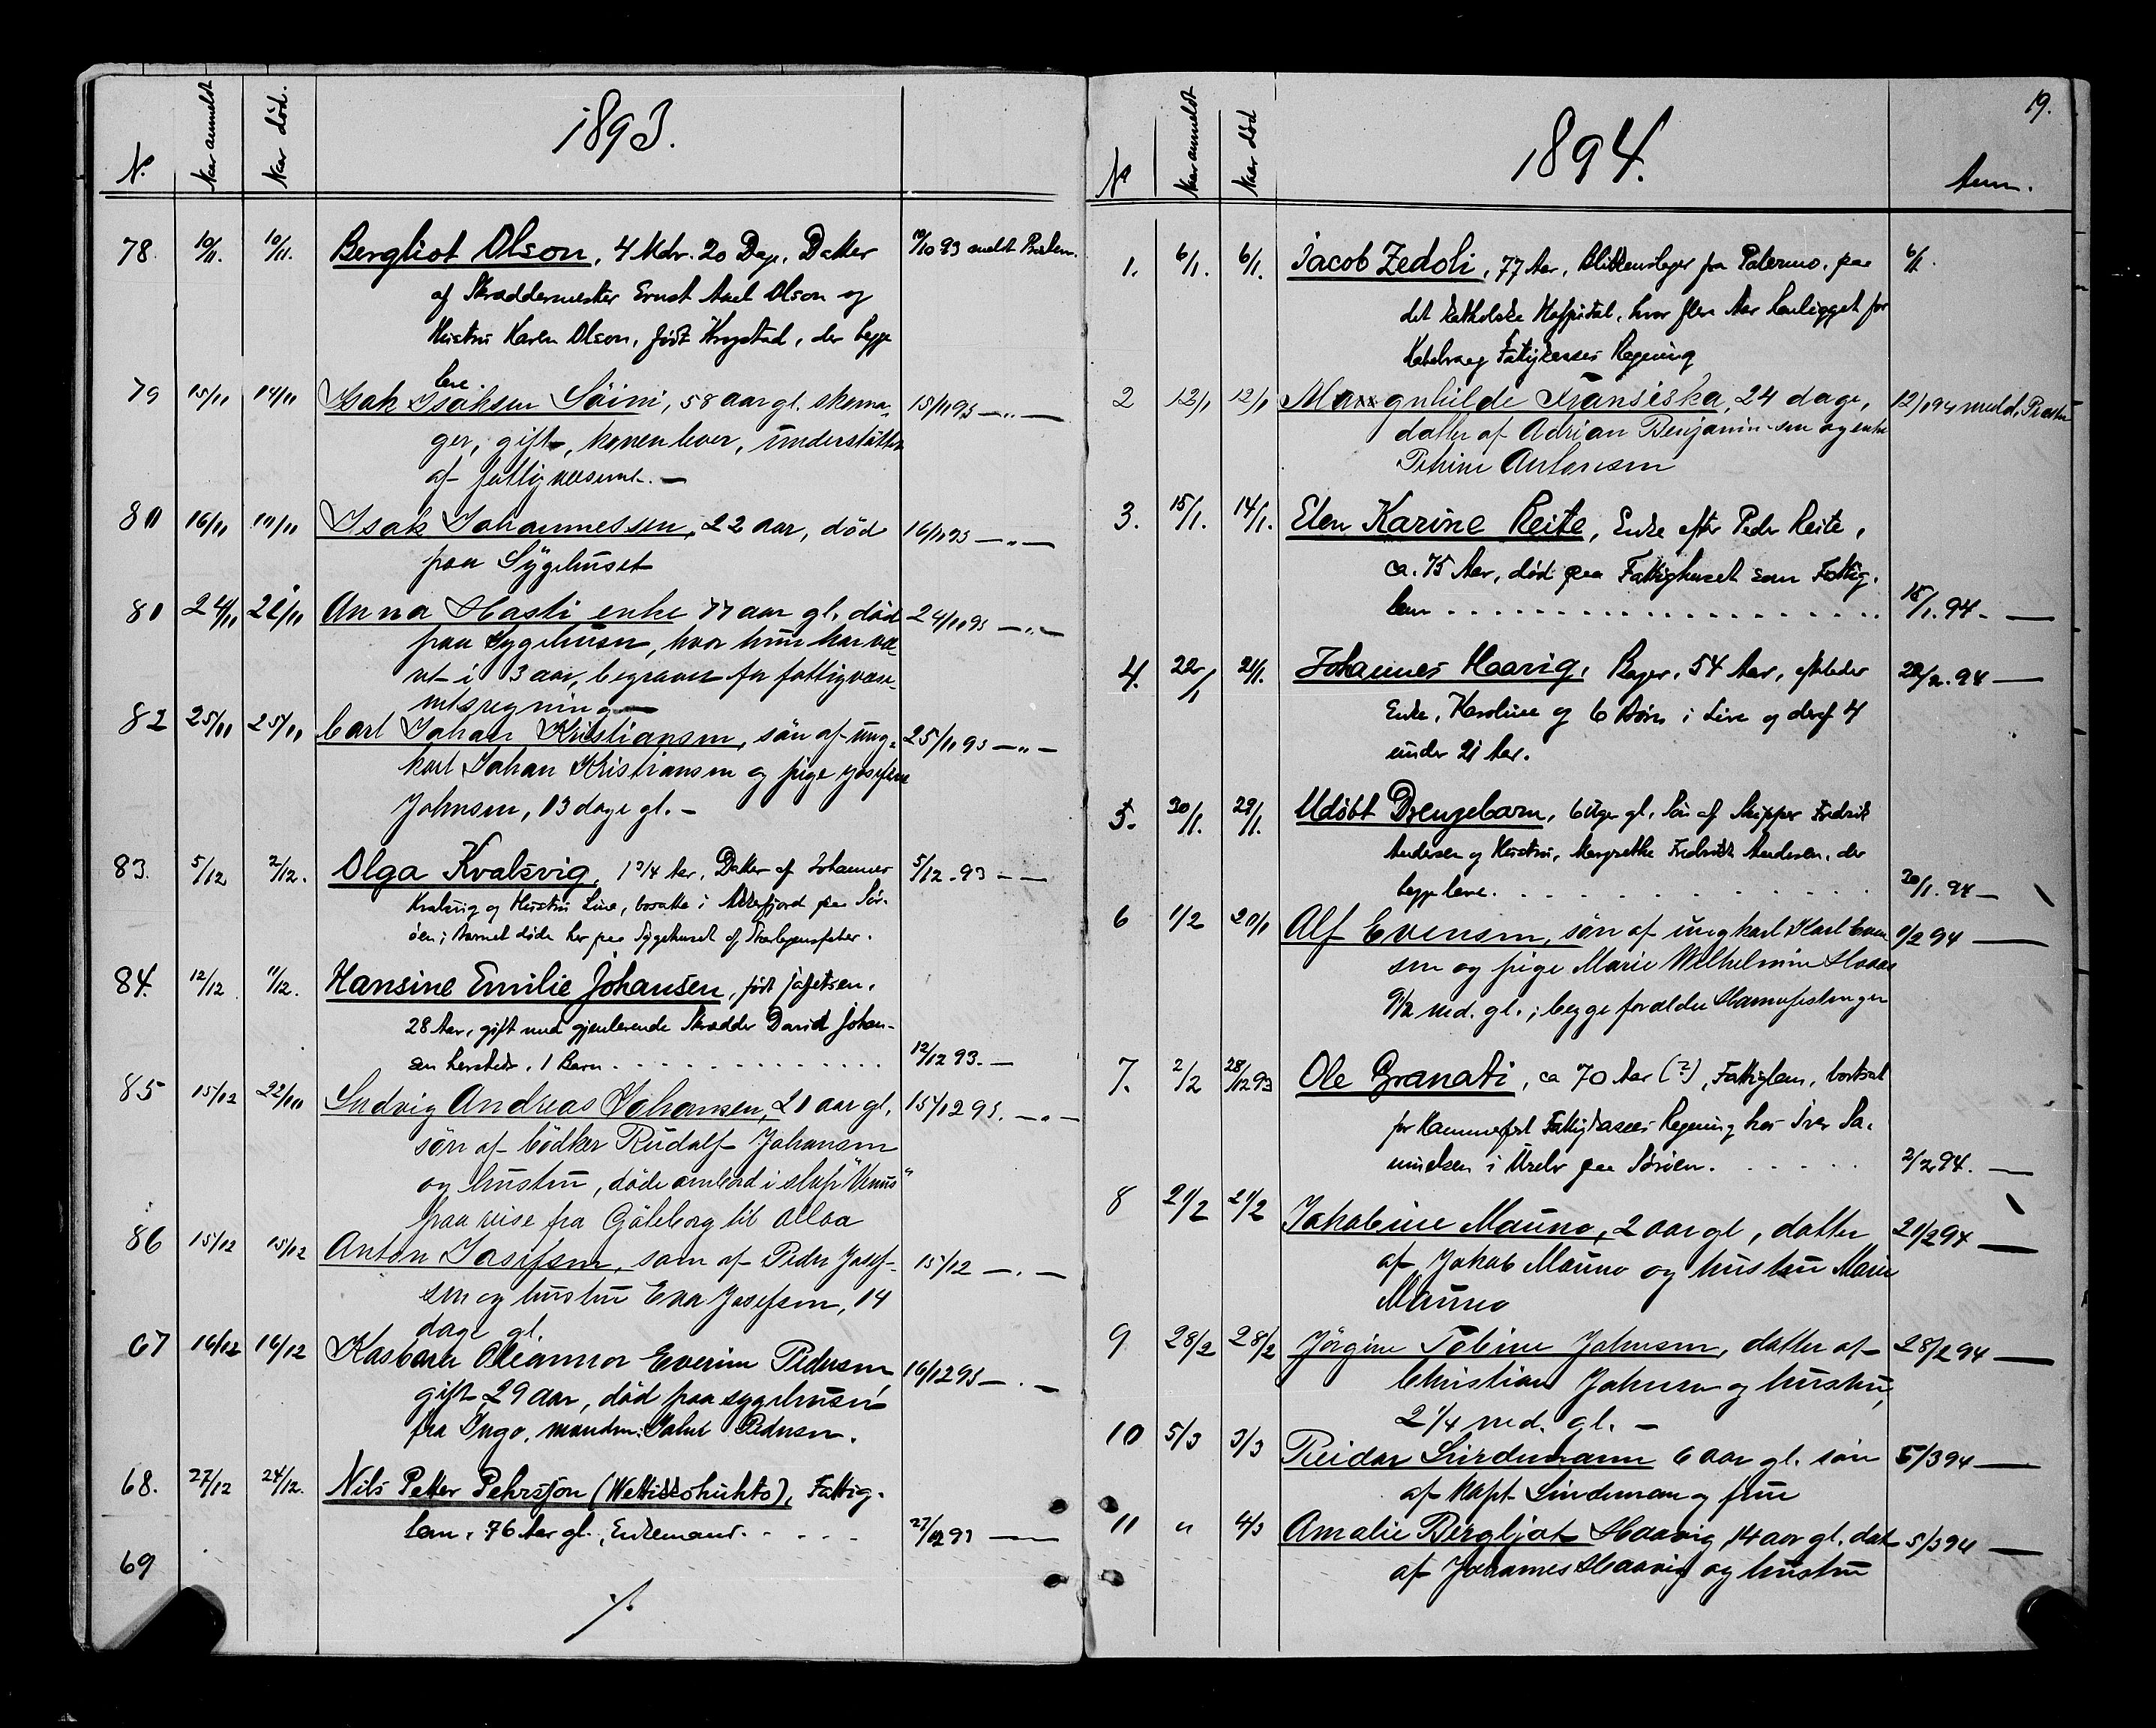 1893.
N. Naar anmeldt Naar død.
78. 10/11. 10/11. Bergliot Olson, 4 Mdr. 20 Dage, Datter 10/10 93 meldt Prosten.
af Skræddermester Ernst Axel Olson og
Hustru Karen Olson, født Krogstad, der begge
leve.
79 15/11 14/11 Isak Isaksen Söini, 58 aar gl. skoma- 15/11 93 —„—
ger, gift, konen lever, understöttes
af fattigvæsenet. —
80 16/11 11/11 Isak Johannessen, 22 aar, död 16/11 93 —„—
paa Sygehuset
80 24/11 22/11 Anna Hasti enke 77 aar gl. död 24/11 93 —„—
paa Sygehuset, hvor hun har væ-
ret i 3 aar, begraves for fattigvæse-
nets regning —
82 25/11 25/11 Carl Johan Kristiansen, sön af ung- 25/11 93 —„—
karl Johan Kristiansen og pige Josefine
Johnsen, 13 dage gl. —
83. 5/12 2/12. Olga Kvalsvig, 1 3/4 Aar, Datter af Johannes 5/12. 93 — —
Kvalsvig og Hustru Line, bosatte i Akkerfjord paa Sør-
øen; Barnet døde her paa Sygehuset af Skarlagensfeber.
84. 12/12 11/12. Hansine Emilie Johansen, født Jafetsen,
28 Aar, gift med gjenlevende Skrædder David Johan-
sen hersteds, 1 Barn . . . . . . . . . . . . 12/12 93. —
85 15/12 22/10 Ludvig Andreas Johansen, 21 aar gl. 15/12 93. —„—
sön af bödker Rudolf Johansen
og hustru, döde ombord i skip "Venus"
paa reise fra Göteborg til Alloa
86 15/12 15/12 Anton Josefsen, som af Peder Josef- 15/12 — . —
sen og hustru Eva Josefsen, 14
dage gl.
67 16/12 16/12 Kasbara Oleanna Everine Pedersen 16/12 93 — . —
gift 29 aar, död paa sygehuset
fra Ingö, manden: Jakob Pedersen.
68. 27/12 24/12. Nils Petter Pehrssjon (Wettisshuhto), Fattig-
lem, 76 Aar gl., Enkemand. . . . . 27/12 93 —
69
./.
19.
1894.
N. Naar anmeldt Naar død Anm.
1. 6/1. 6/1. Jacob Zedoli, 77 Aar, Blikkenslager fra Palermo, paa 6/1.
det katholske Hospital, hvor flere Aar henligget for
Kobelvaag Fattigkasses Regning
2 12/1 12/1 Maxxgnhilde Fransiska, 24 dage, 12/1 94 medd. Prosten
datter af Adrian Benjaminsen og enke
Petrine Antonsen
3. 15/1. 14/1. Elen Karine Reite, Enke efter Peder Reite,
ca. 75 Aar, død paa Fattighuset som Fattig-
lem . . . . . . . . . . . . . . . . . . 15/1. 94 - —
4. 22/1 21/1. Johannes Haavig, Bager, 54 Aar, efterlader 22/2. 94 —
Enke, Karoline og 6 Børn i Live og deraf 4
under 21 Aar.
5. 30/1. 29/1. Udøbt Drengebarn, 6 Uger gl. Søn af Skipper Fredrik
Andersen og Hustru, Margrethe Fredrikke Andersen, der
begge leve. . . . . . . . . . . . . 30/1. 94 —
6 1/2 20/1 Alf Evensen, sön af ungkarl Karl Even- 1/2 94 —
sen og pige Marie Wilhelmine Haaes
9 1/2 md. gl.; begge forældre Hammerfestinger
7. 2/2 28/12 93 Ole Granati, ca 70 Aar (?), Fattiglem, bortsat
for Hammerfest Fattigkasses Regning hos Iver Sa-
muelsen i Uvelv paa Sørøen. . . . . . 2/2 94. —
8 21/2 21/2 Jakobine Mauno, 2 aar gl, datter 21/2 94 —
af Jakob Mauno og hustru Marie
Mauno
9 28/2 28/2 Jörgine Tobine Johnsen, datter af 28/2 94 —
Christian Johnsen og hustru,
2 1/4 md. gl. —
10 5/3 3/3 Reidar Lindemann 6 aar gl. sön 5/3 94 —
af Kapt. Lindeman og frue
11 „ 4/3 Amalie Bergljot Haavig, 14 aar gl. dat 5/3 94 —
af Johannes Haavig og hustru